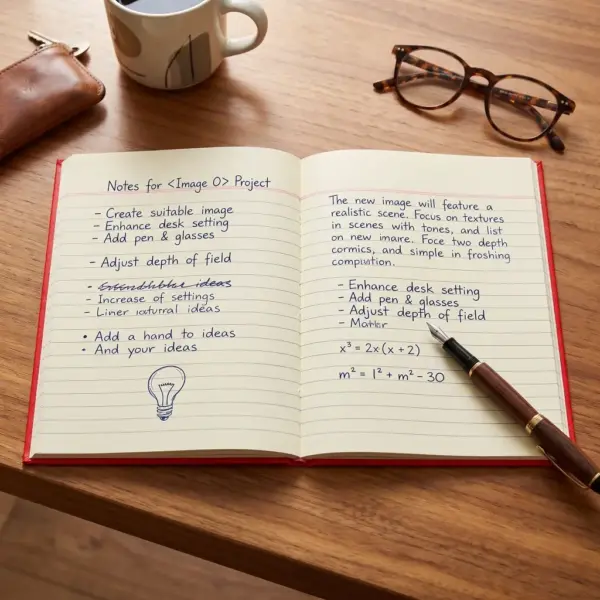 Notes for <Image 0> Project
- Create suitable image
- Enhance desk setting
- Add pen & glasses
- Adjust depth of field
ideas
- Increase of settings
- Liner ideas
• Add a hand to ideas
• And your ideas
The new image will feature a
realistic scene. Focus on textures
in scenes with tones, and list
on new Foce two depth
cormics, and simple in froshing
- Enhance desk setting
- Add pen & glasses
- Adjust depth of field
x³ = 2x(x + 2)
m² = 1² + m² - 30